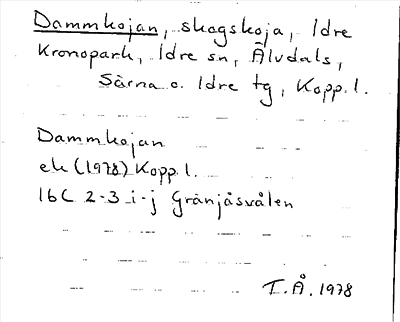 Dammkojan, skogskoja, Idre
Kronopark, Idre sn, Älvdals,
Särna o. Idre tg, Kopp. l.
Dammkojan
ek (1978) Kopp l.
16C 2-3 i-j Gränjåsvålen
I.Å. 1978